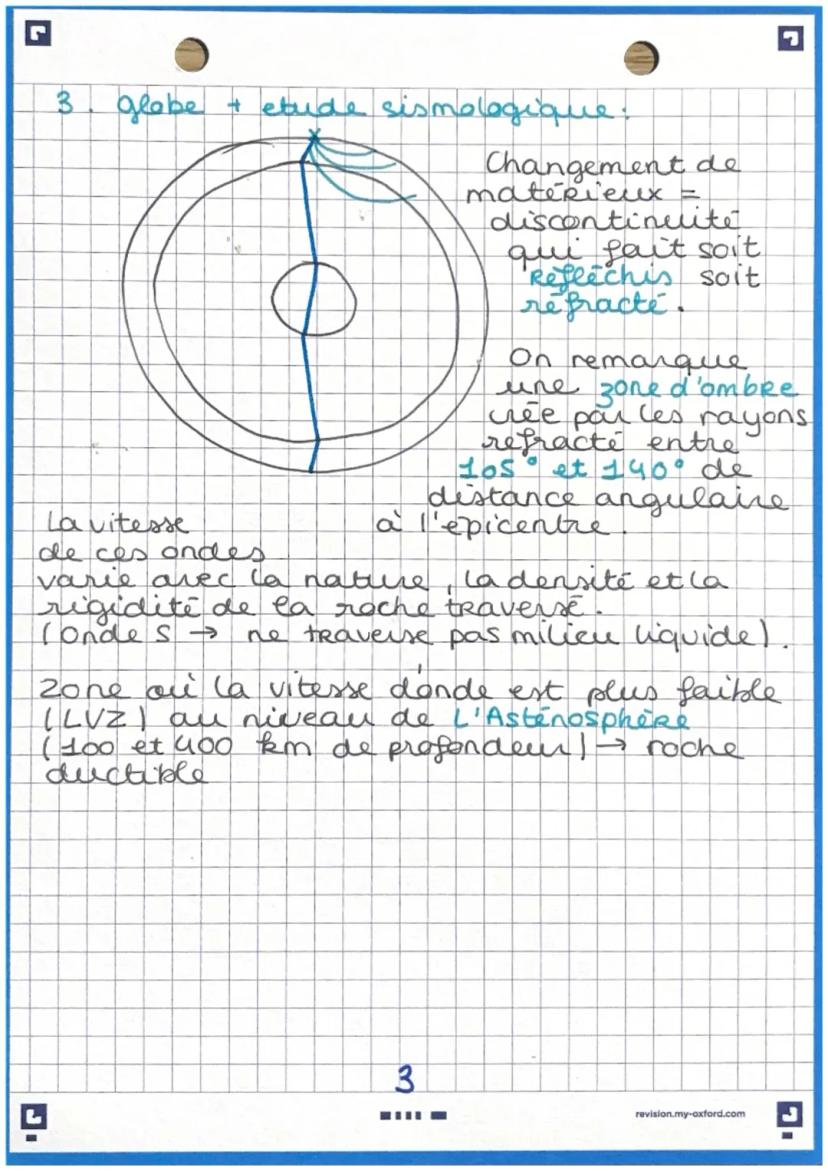 3. globe + etude sismologique:
Changement de
matérieux =
discontinuité
qui fait soit
Réfléchis soit
réfracté.
On remarque
une zone d'ombre
crée par les rayons
refracté entre
105° et 140° de
distance angulaire
à l'épicentre.
La vitesse
de ces ondes
varie avec la nature, la densité et la
rigidité de la roche traversé.
(onde S → ne traverse pas milieu liquide).
Zone où la vitesse d'onde est plus faible
(LVZ) au niveau de L'Asténosphère
(100 et 400 km de profondeur) → roche
ductible
3
revision.my-oxford.com